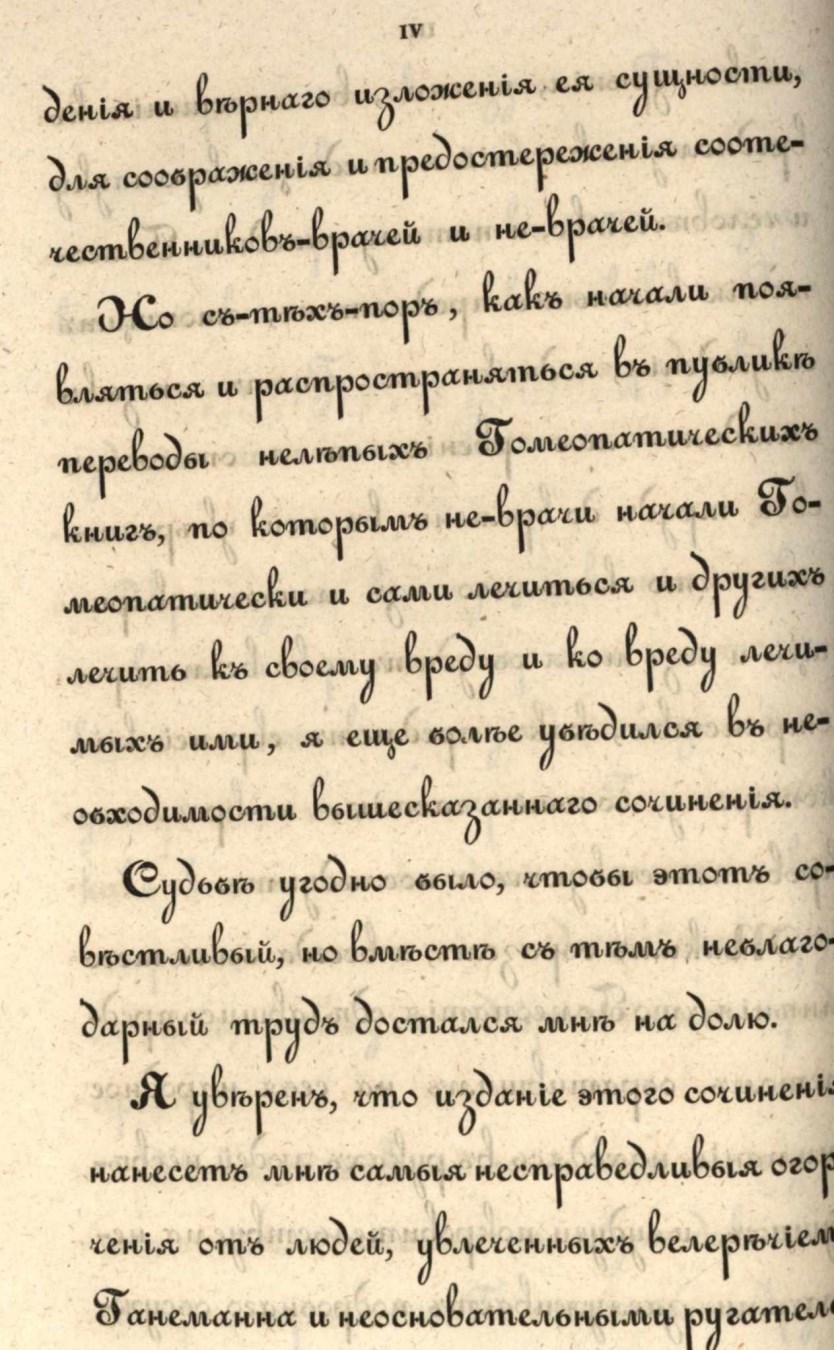 IV
денія и вѣрнаго изложенія ея сущности,
для соображенія и предостереженія сооте-
чественниковъ-врачей и не-врачей.
Но съ-тѣхъ-поръ, какъ начали поя-
вляться и распространяться въ публикѣ
переводы нелѣпыхъ Гомеопатическихъ
книгъ, по которымъ не-врачи начали Го-
меопатически и сами лечиться и другихъ
лечить къ своему вреду и ко вреду лечи-
мыхъ ими, я еще болѣе убѣдился въ не-
обходимости вышесказаннаго сочиненія.
Судьбѣ угодно было, чтобы этотъ со-
вѣстливый, но вмѣстѣ съ тѣмъ неблаго-
дарный трудъ достался мнѣ на долю.
Я увѣренъ, что изданіе этого сочинені
нанесетъ мнѣ самыя несправедливыя огор
ченія отъ людей, увлеченныхъ велерѣчіем
Ганеманна и неосновательными ругател